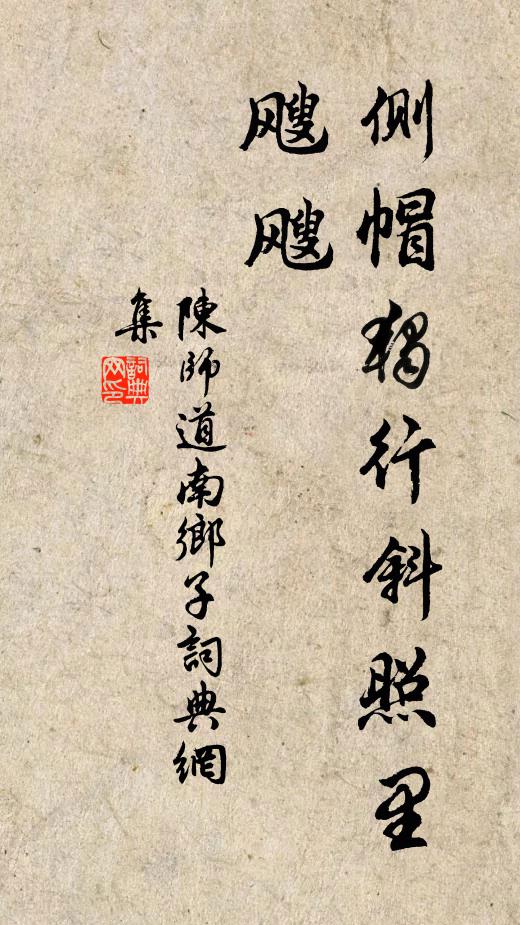 側帽獨行斜照里
颼颼
陳師道南鄉子詞典網
集
詞典
网印